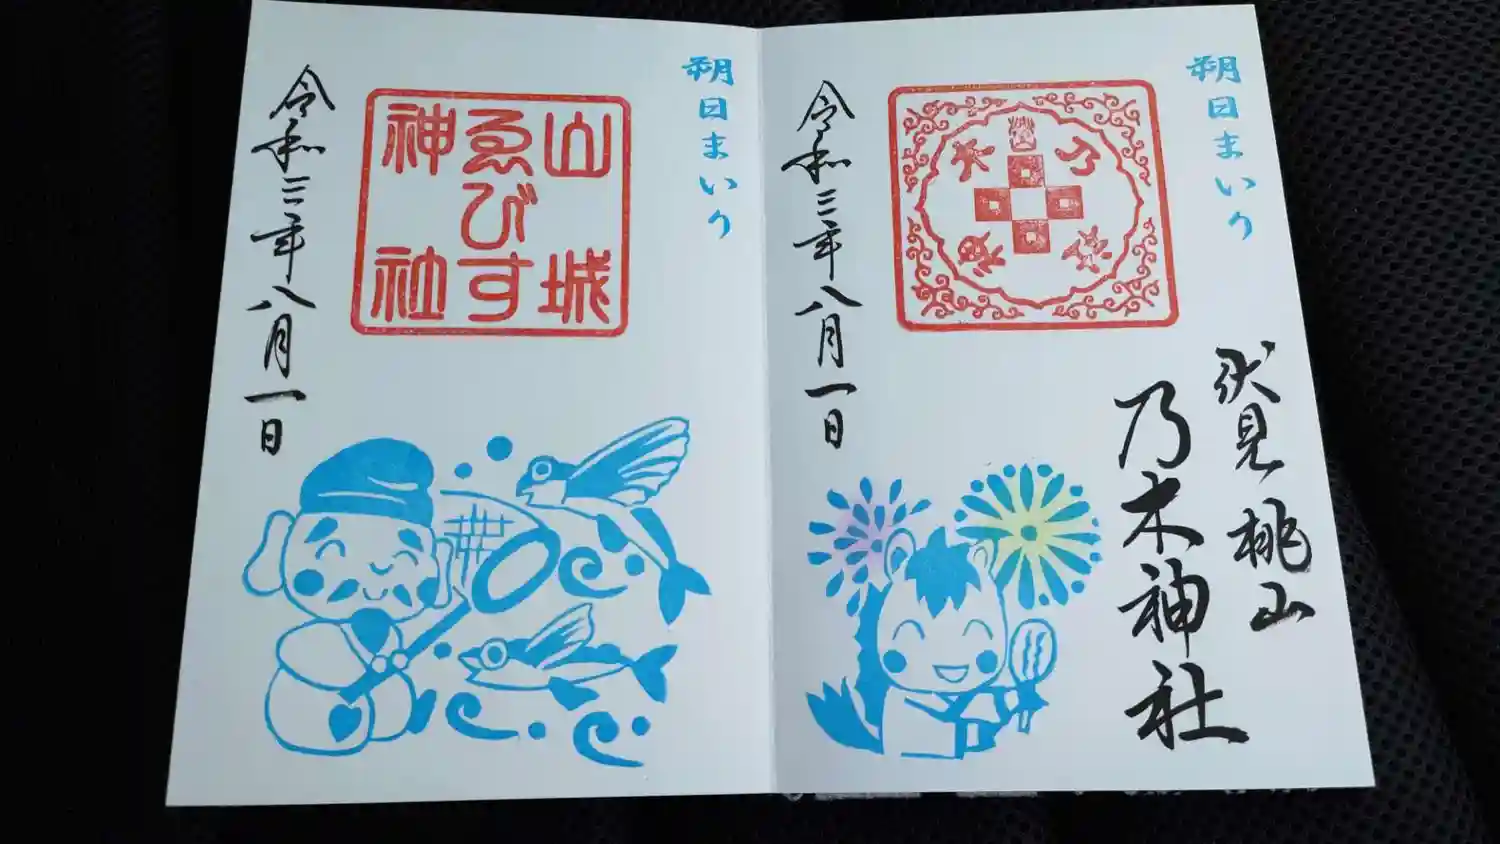 朔日まいり
伏見桃山
乃木神社
乃木
令和三年八月一日
朔日まいり
山城
ゑびす
神社
令和三年八月一日